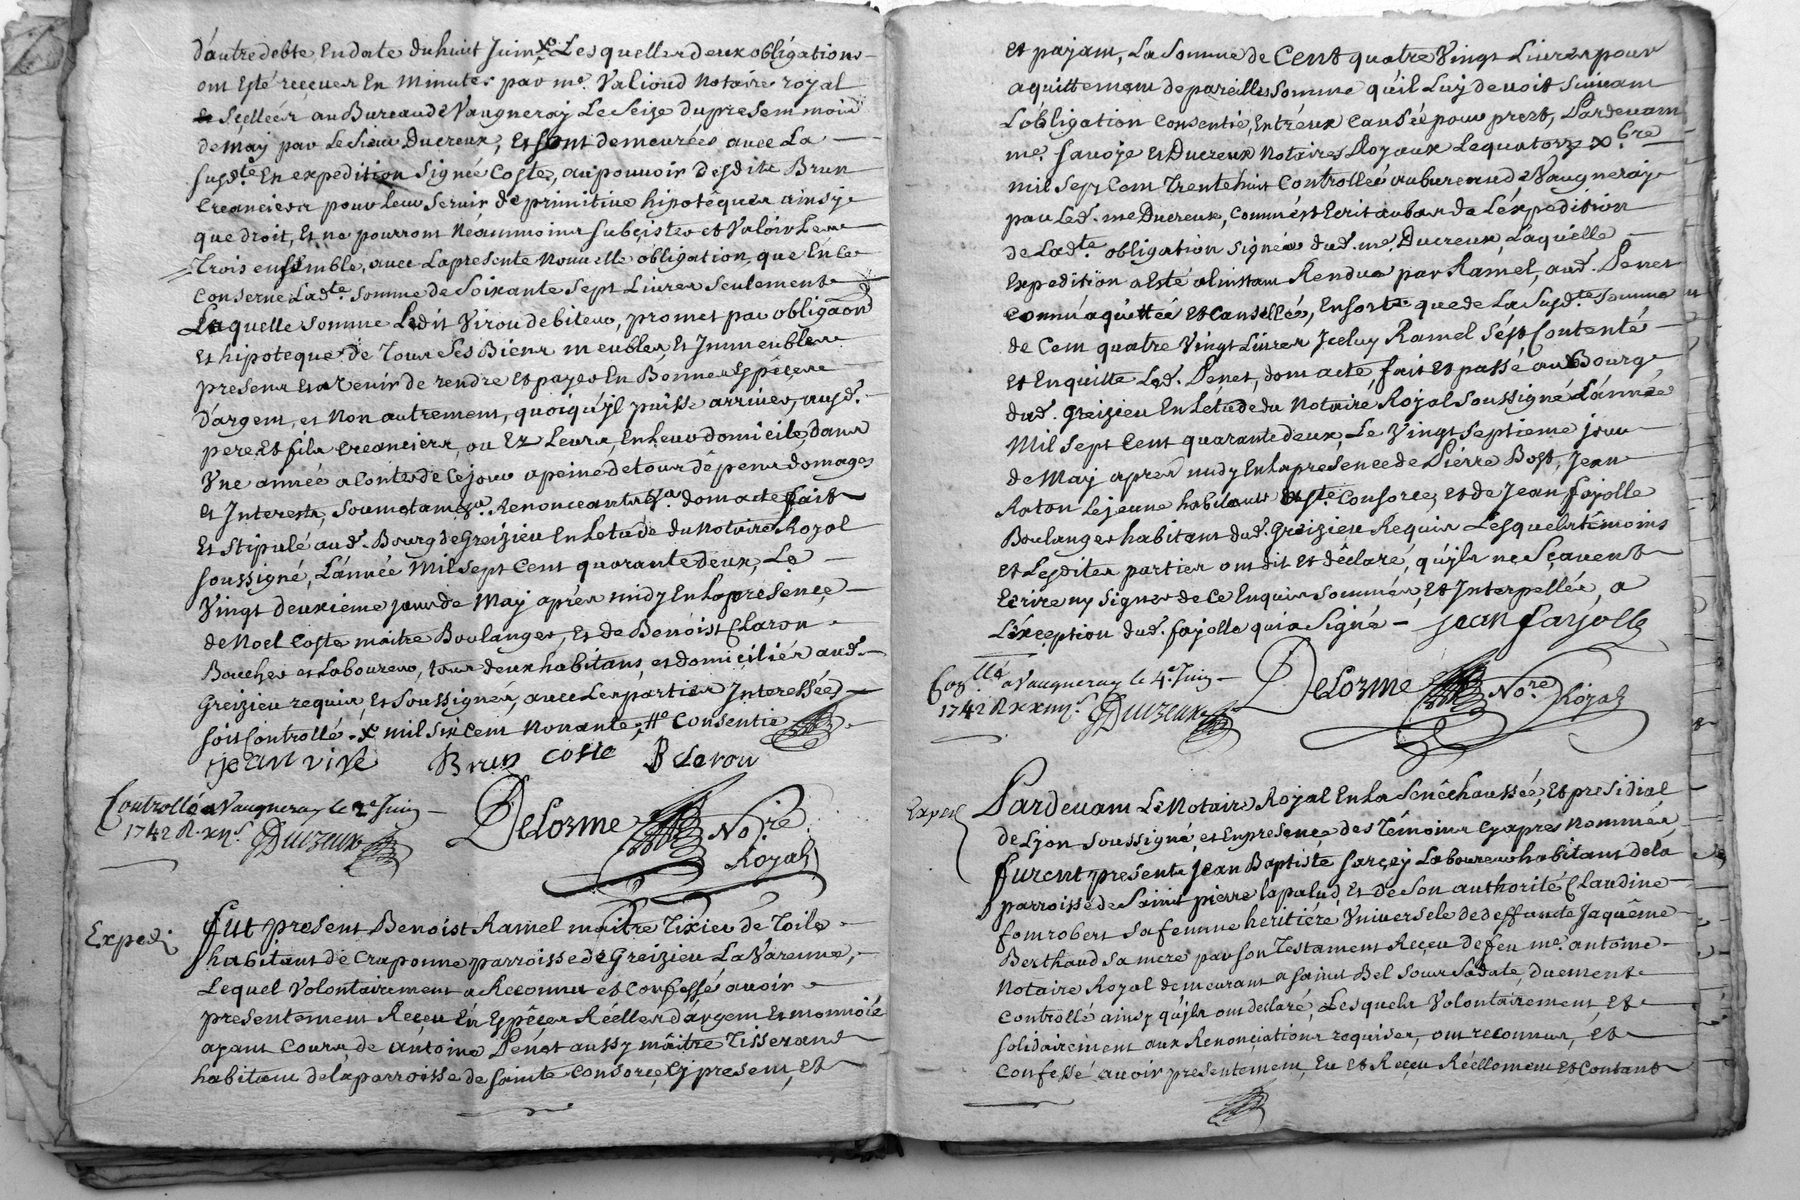 d'autre debte, En datte du huit Juin x Lesquelles deux obligations
ont Esté reçeues En minutes par me. Valioud Notaire royal
et Scellées au Bureau de Vaugneray Le Seize du present mois
de May par Le Sieur Ducreux, et sont demeurées avec La
susd.te En expedition Signée Coste, au pouvoir desdits Brun
Creanciers pour leur Servir de primitive hipotéques ainsy
que droit, Et ne pourront Néanmoins Subcister et Valoir Les
Trois ensemble, avec La presente Nouvelle obligation, que En Ce
Conserne Lad.te Somme de Soixante Sept Livres Seulement
Laquelle Somme Ledit Virou debiteur, promet par obligaõn
Et hipoteque de Tous Ses Biens meubles Et Immeubles
presens Et a Venir de rendre Et payer En Bonnes Espéçes
D'argent, et Non autrement, quoiqu'jl puisse arriver, ausd.
pere Et fils Creanciers, ou Ez Leurs, En Leur domicile, dans
Vne année a Conter de Ce jour a peine de tous dépens domages
Et Interests, Soumetans &a. Renonceants &a. dont acte fait
Et Stipulé aud. Bourg de Greizieu En Letude du Notaire Royal
soussigné, L'année Mil Sept Cent quarante deux, Le
Vingt deuxieme jour de May aprés midy En La présençe
de Noel Coste maître Boulanger, Et de Benoist Claron
Boucher et Laboureur, tous deux habitans et domiciliés aud.
Greizieu requis, Et Soussignés, avec Les parties Interessées
soit Controllé. x mil Six Cent Nonante, # Consentie
jean viré Brun coste B claron
Controllé a Vaugneray le 2e Juin
1742 R. xii s. GDucreux
Delorme No.re Royal
Exped.
Fut present Benoist Ramel maitre Tixieu de Toile
habitant de Craponne parroisse de Greizieu La Varenne,
Lequel Volontairement a Reconnu et Confessé avoir
presentement Reçeu En Espéçes Réelles dargent Et monnoié
ayant Cours, de Antoine Penet aussy maître Tisserand
habitant de la parroisse de sainte Consorce, Cy present, Et
Et payant, La Somme de Cent quatre Vingt Livres pour
aquittement de pareille Somme qu'il Luy devoit Suivant
L'obligation Consentie, Entr'eux Causée pour prest, Pardevant
me. Savoye Et Ducreux Notaires Royaux Le quatorze x.bre
mil Sept Cent Trente huit Controllée au bureau de Vaugneray
par Led. me Ducreux, Comme est Ecrit au bas de L'expedition
de Lad.te obligation Signée dud. me. Ducreux, Laquelle
Expedition a Esté a linstant Rendue par Ramel, aud. Penet
comm' aquittée Et Cansellée, Ensorte que de La Susd.te Somme
de Cent quatre Vingt Livres Jceluy Ramel S'est Contenté
Et En quitte Led. Penet, dont acte, fait Et passé au Bourg
dud. Greizieu En Letude du Notaire Royal Soussigné L'année
Mil Sept Cent quarante deux, Le Vingt Septieme jour
de May aprés midy En La presence de Pierre Bost, Jean
Raton Le jeune habitants de S.te Consorce, et de Jean fayolle
Boulanger habitant dud. Greizieu Requis Lesquels témoins
et Lesdites parties ont dit Et déclaré, qu'jls ne Sçavent
Ecrire ny Signer de Ce Enquis Sommés, Et Interpellés, a
L'éxception dud. fayolle qui a Signé - jean fayolle
Con.llé a Vaugneray le 4.e Juin
1742 R xxiiij s. GDucreux
Delorme No.re Royal
Exped.
Pardevant Le Notaire Royal En La Sénêchaussée, Et presidial
de Lyon Soussigné, et En presençe des Témoins Cy aprés Nommés
furent presents Jean Baptiste Sarçey Laboureur habitant de la
parroisse de Saint pierre Lapalud, Et de Son authorité Claudine
fontrobert Sa femme heritiére Vniverselle de deffuncte Jaquême
Berthaud Sa mere par Son Testament Reçeu de feu me. antoine
Notaire Royal demeurant a Saint Bel Sous Sa date duement
Controllé ainsy qu'jls ont declaré, Lesquels Volontairement, Et
solidairement aux Renonçiations requises, ont reconnu, Et
Confessé avoir presentement, Eu et Reçeu Réellement Et Contant